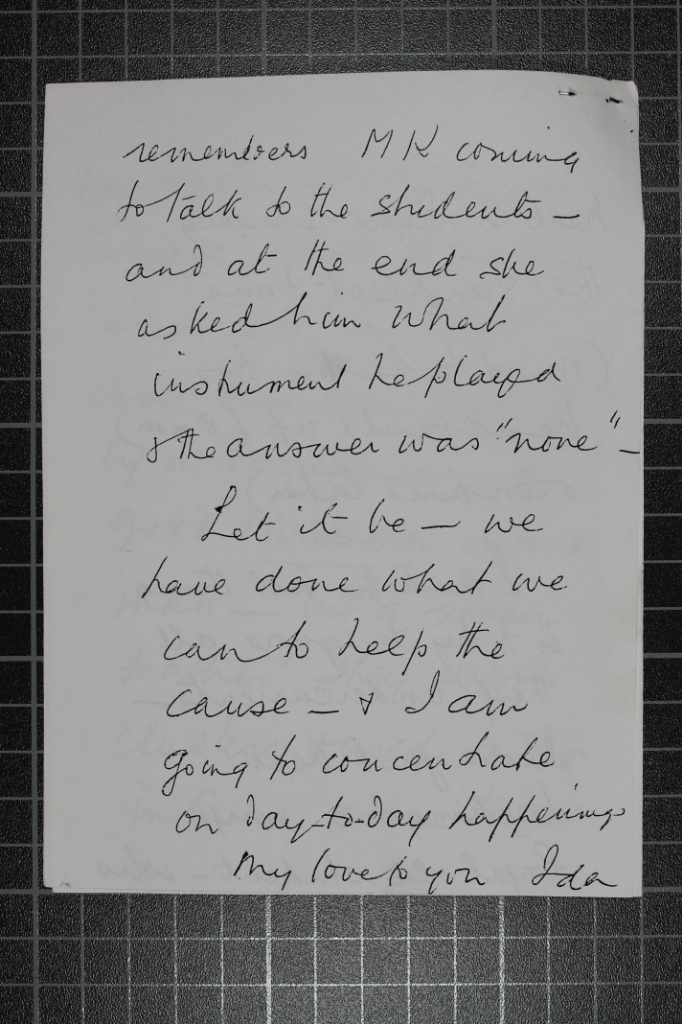 remembers MK coming
to talk to the students —
and at the end she
asked him what
instrument he played
& the answer was "none" —
Let it be — we
have done what we
can to help the
cause — & I am
going to concentrate
on day-to-day happenings
My love to you Ida